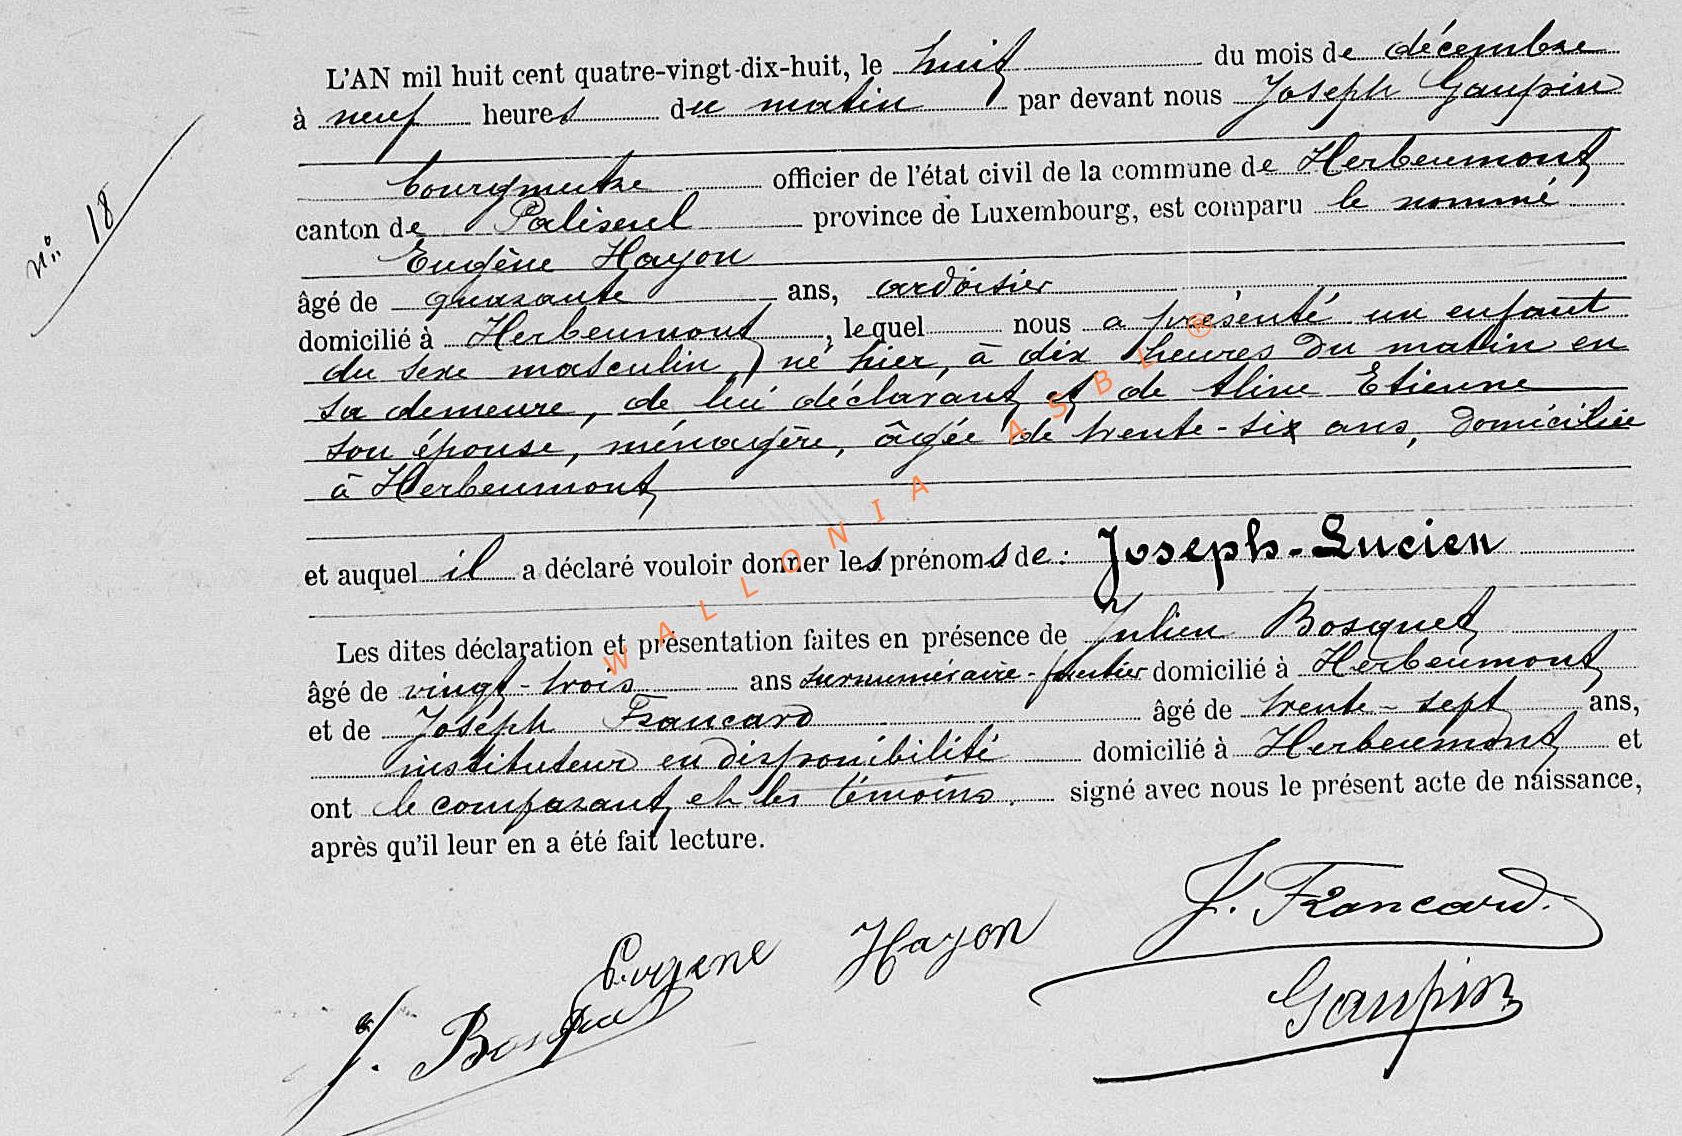 L'AN mil huit cent quatre-vingt-dix-huit, le huit du mois de décembre
à neuf heures du matin par devant nous Joseph Gaupin
Bourgmestre officier de l'état civil de la commune de Herbeumont
n° 18
canton de Paliseul province de Luxembourg, est comparu le nommé
Eugène Hayon
âgé de quarante ans, ardoisier
domicilié à Herbeumont, lequel nous a présenté un enfant
du sexe masculin, né hier, à dix heures du matin en
sa demeure, de lui déclarant et de Aline Etienne
son épouse, ménagère, âgée de trente-six ans, domiciliée
à Herbeumont
et auquel il a déclaré vouloir donner les prénoms de : Joseph-Lucien
Les dites déclaration et présentation faites en présence de Julien Bosquet
âgé de vingt-trois ans surnuméraire-forestier domicilié à Herbeumont
et de Joseph Francard âgé de trente-sept ans,
instituteur en disponibilité domicilié à Herbeumont et
ont le comparant et les témoins, signé avec nous le présent acte de naissance,
après qu'il leur en a été fait lecture.
J. Francard.
Eugene Hayon
Gaupin
J. Bosquet
WALLONIA ASBL ®